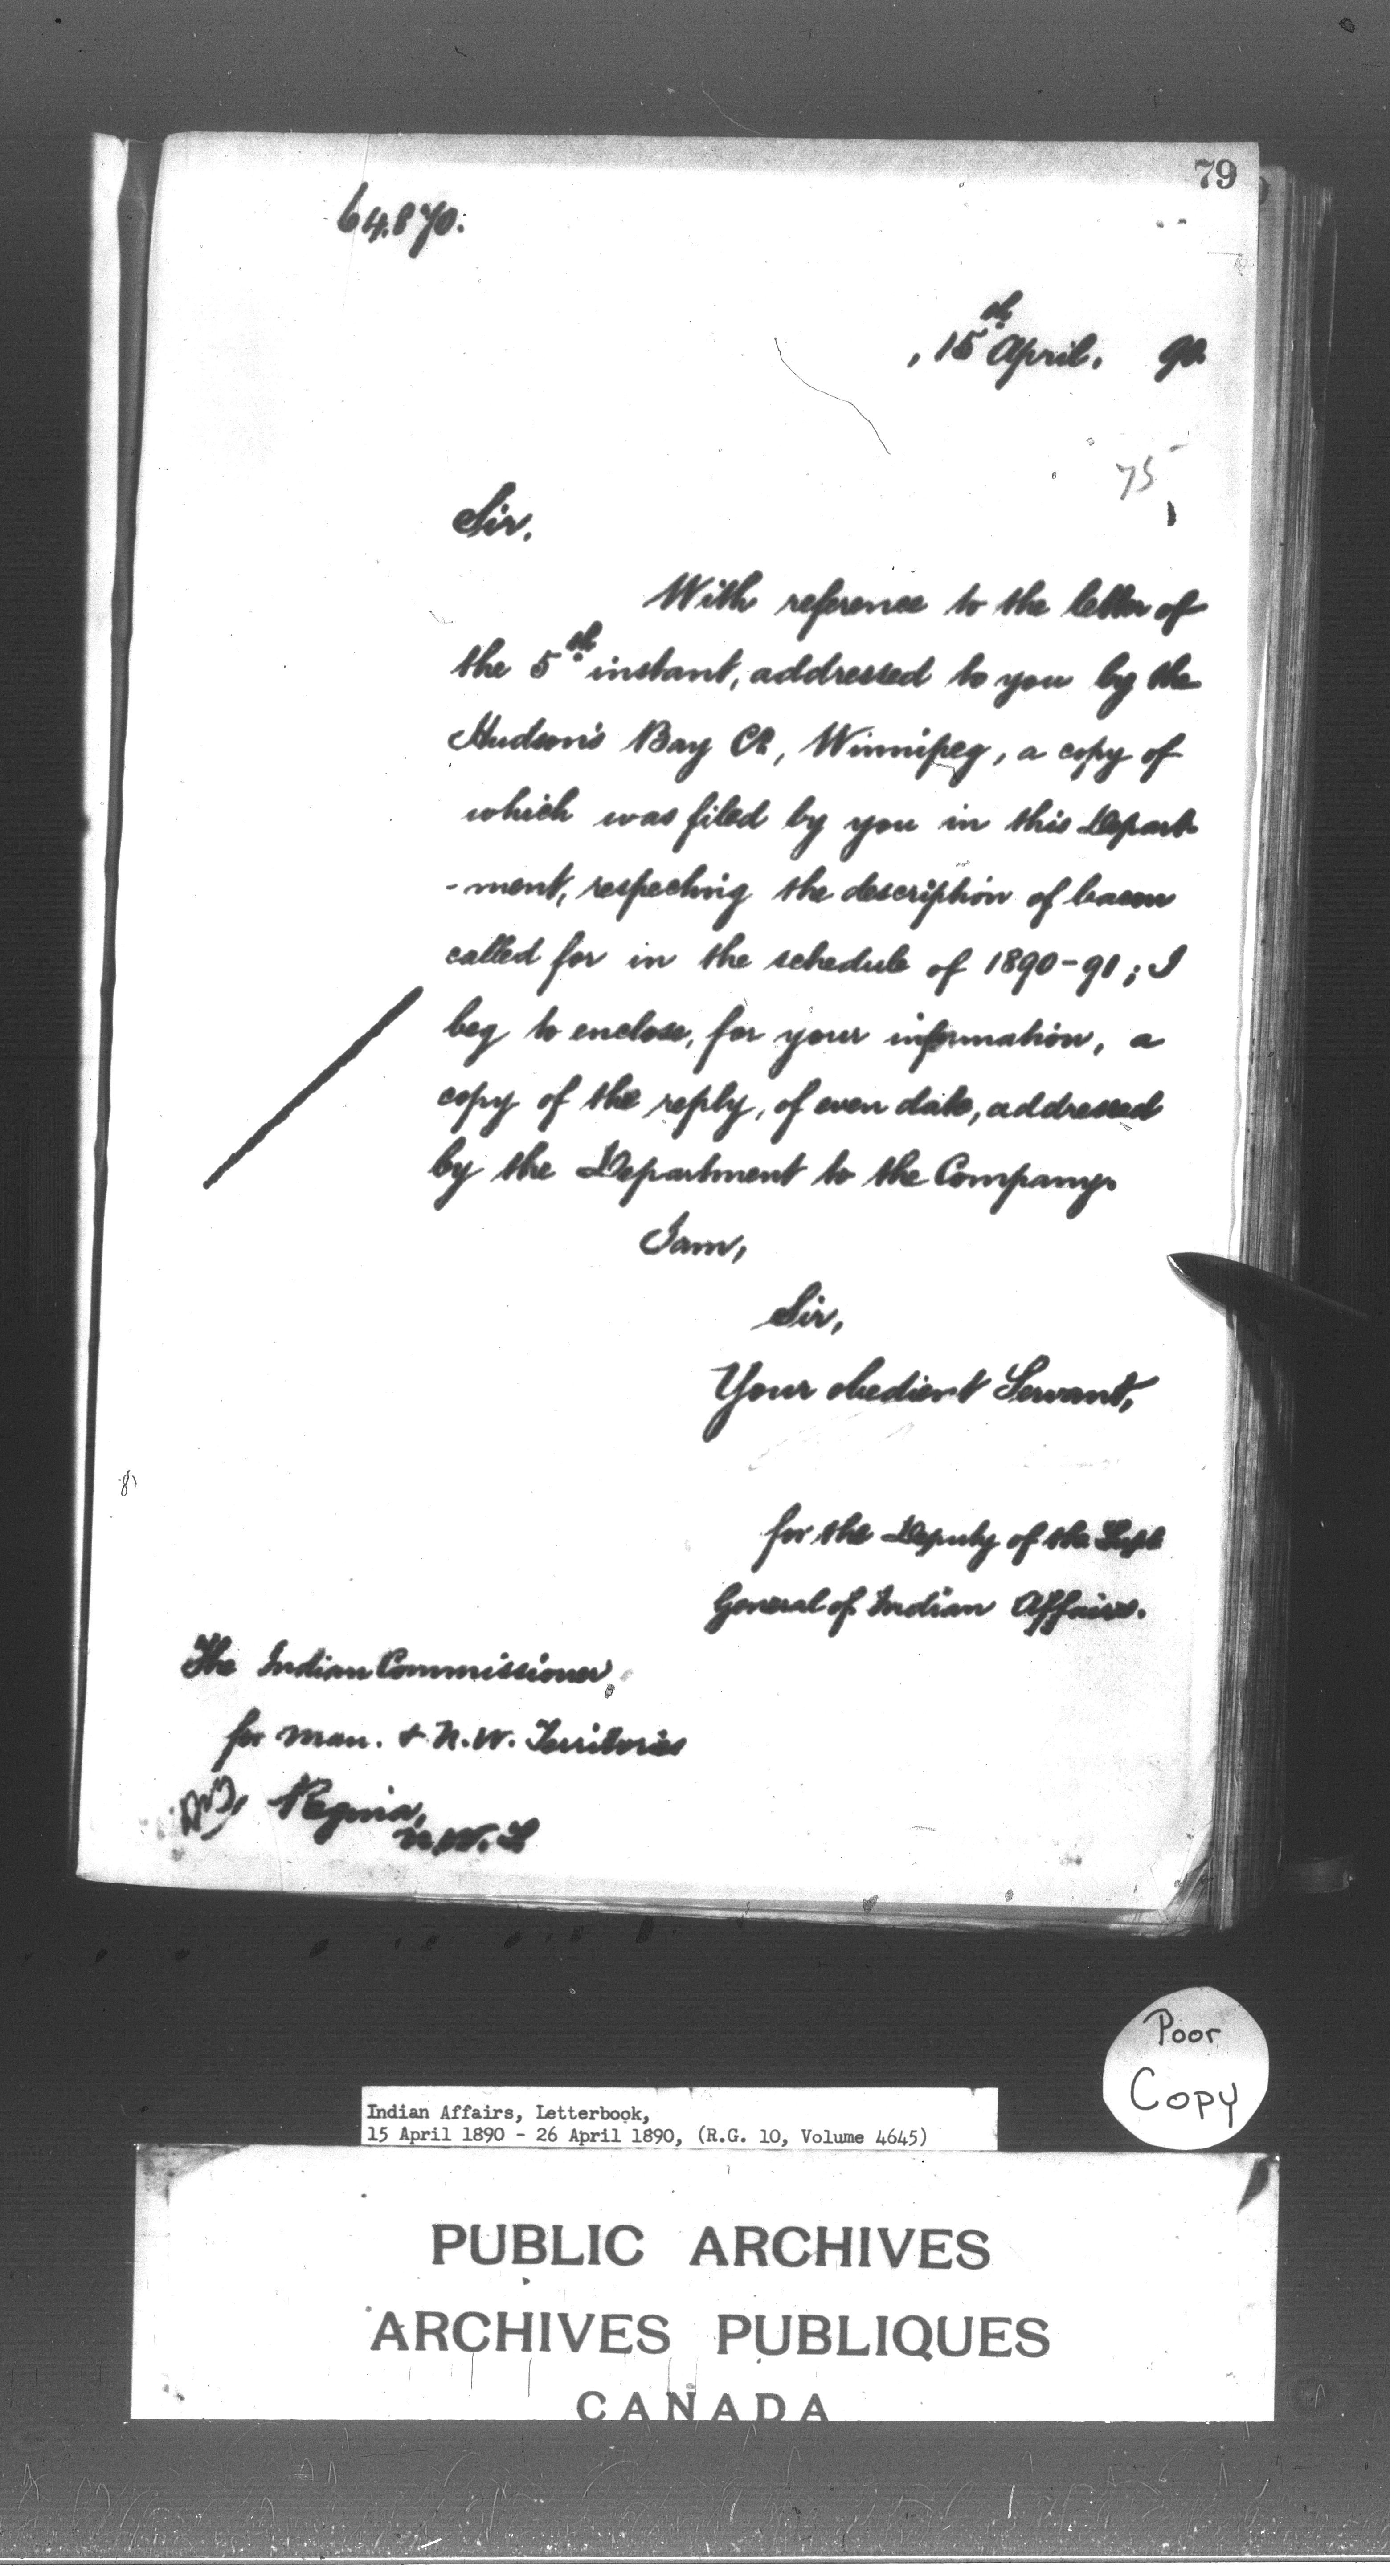 79
64.870.
, 15th April. 90.
75
Sir,
With reference to the letter of
the 5th instant, addressed to you by the
Hudson's Bay Co, Winnipeg, a copy of
which was filed by you in this Depart
-ment, respecting the description of bacon
called for in the schedule of 1890-91; I
beg to enclose, for your information, a
copy of the reply, of even date, addressed
by the Department to the Company.
I am,
Sir,
Your obedient Servant,
for the Deputy of the Supt
General of Indian Affairs.
The Indian Commissioner
for Man. & N.W. Territories
Regina,
N.W.T
Poor
Copy
Indian Affairs, Letterbook,
15 April 1890 - 26 April 1890, (R.G. 10, Volume 4645)
PUBLIC ARCHIVES
ARCHIVES PUBLIQUES
CANADA